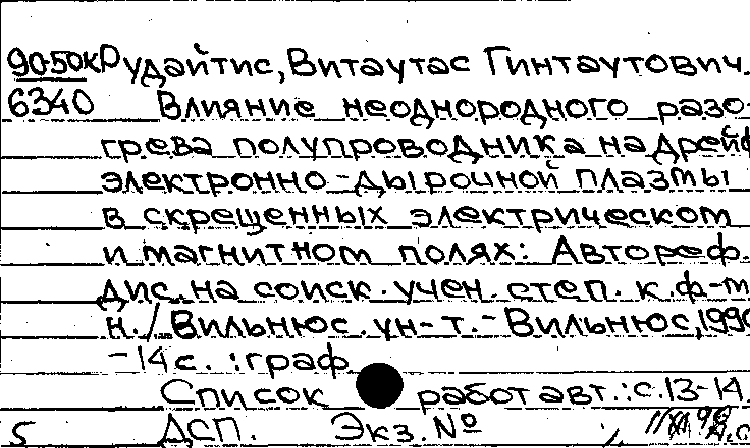 90-50к Рудайтис, Витаутас Гинтаутович.
6340 Влияние неоднородного разо-
грева полупроводника на дрейф
электронно-дырочной плазмы
в скрещенных электрическом
и магнитном полях: Автореф.
дис. на соиск. учен. степ. к. ф-м
н. / Вильнюс. ун-т. - Вильнюс, 1990
- 14 с. : граф
Список работ авт.: с. 13-14.
5 ДСП. Экз. №